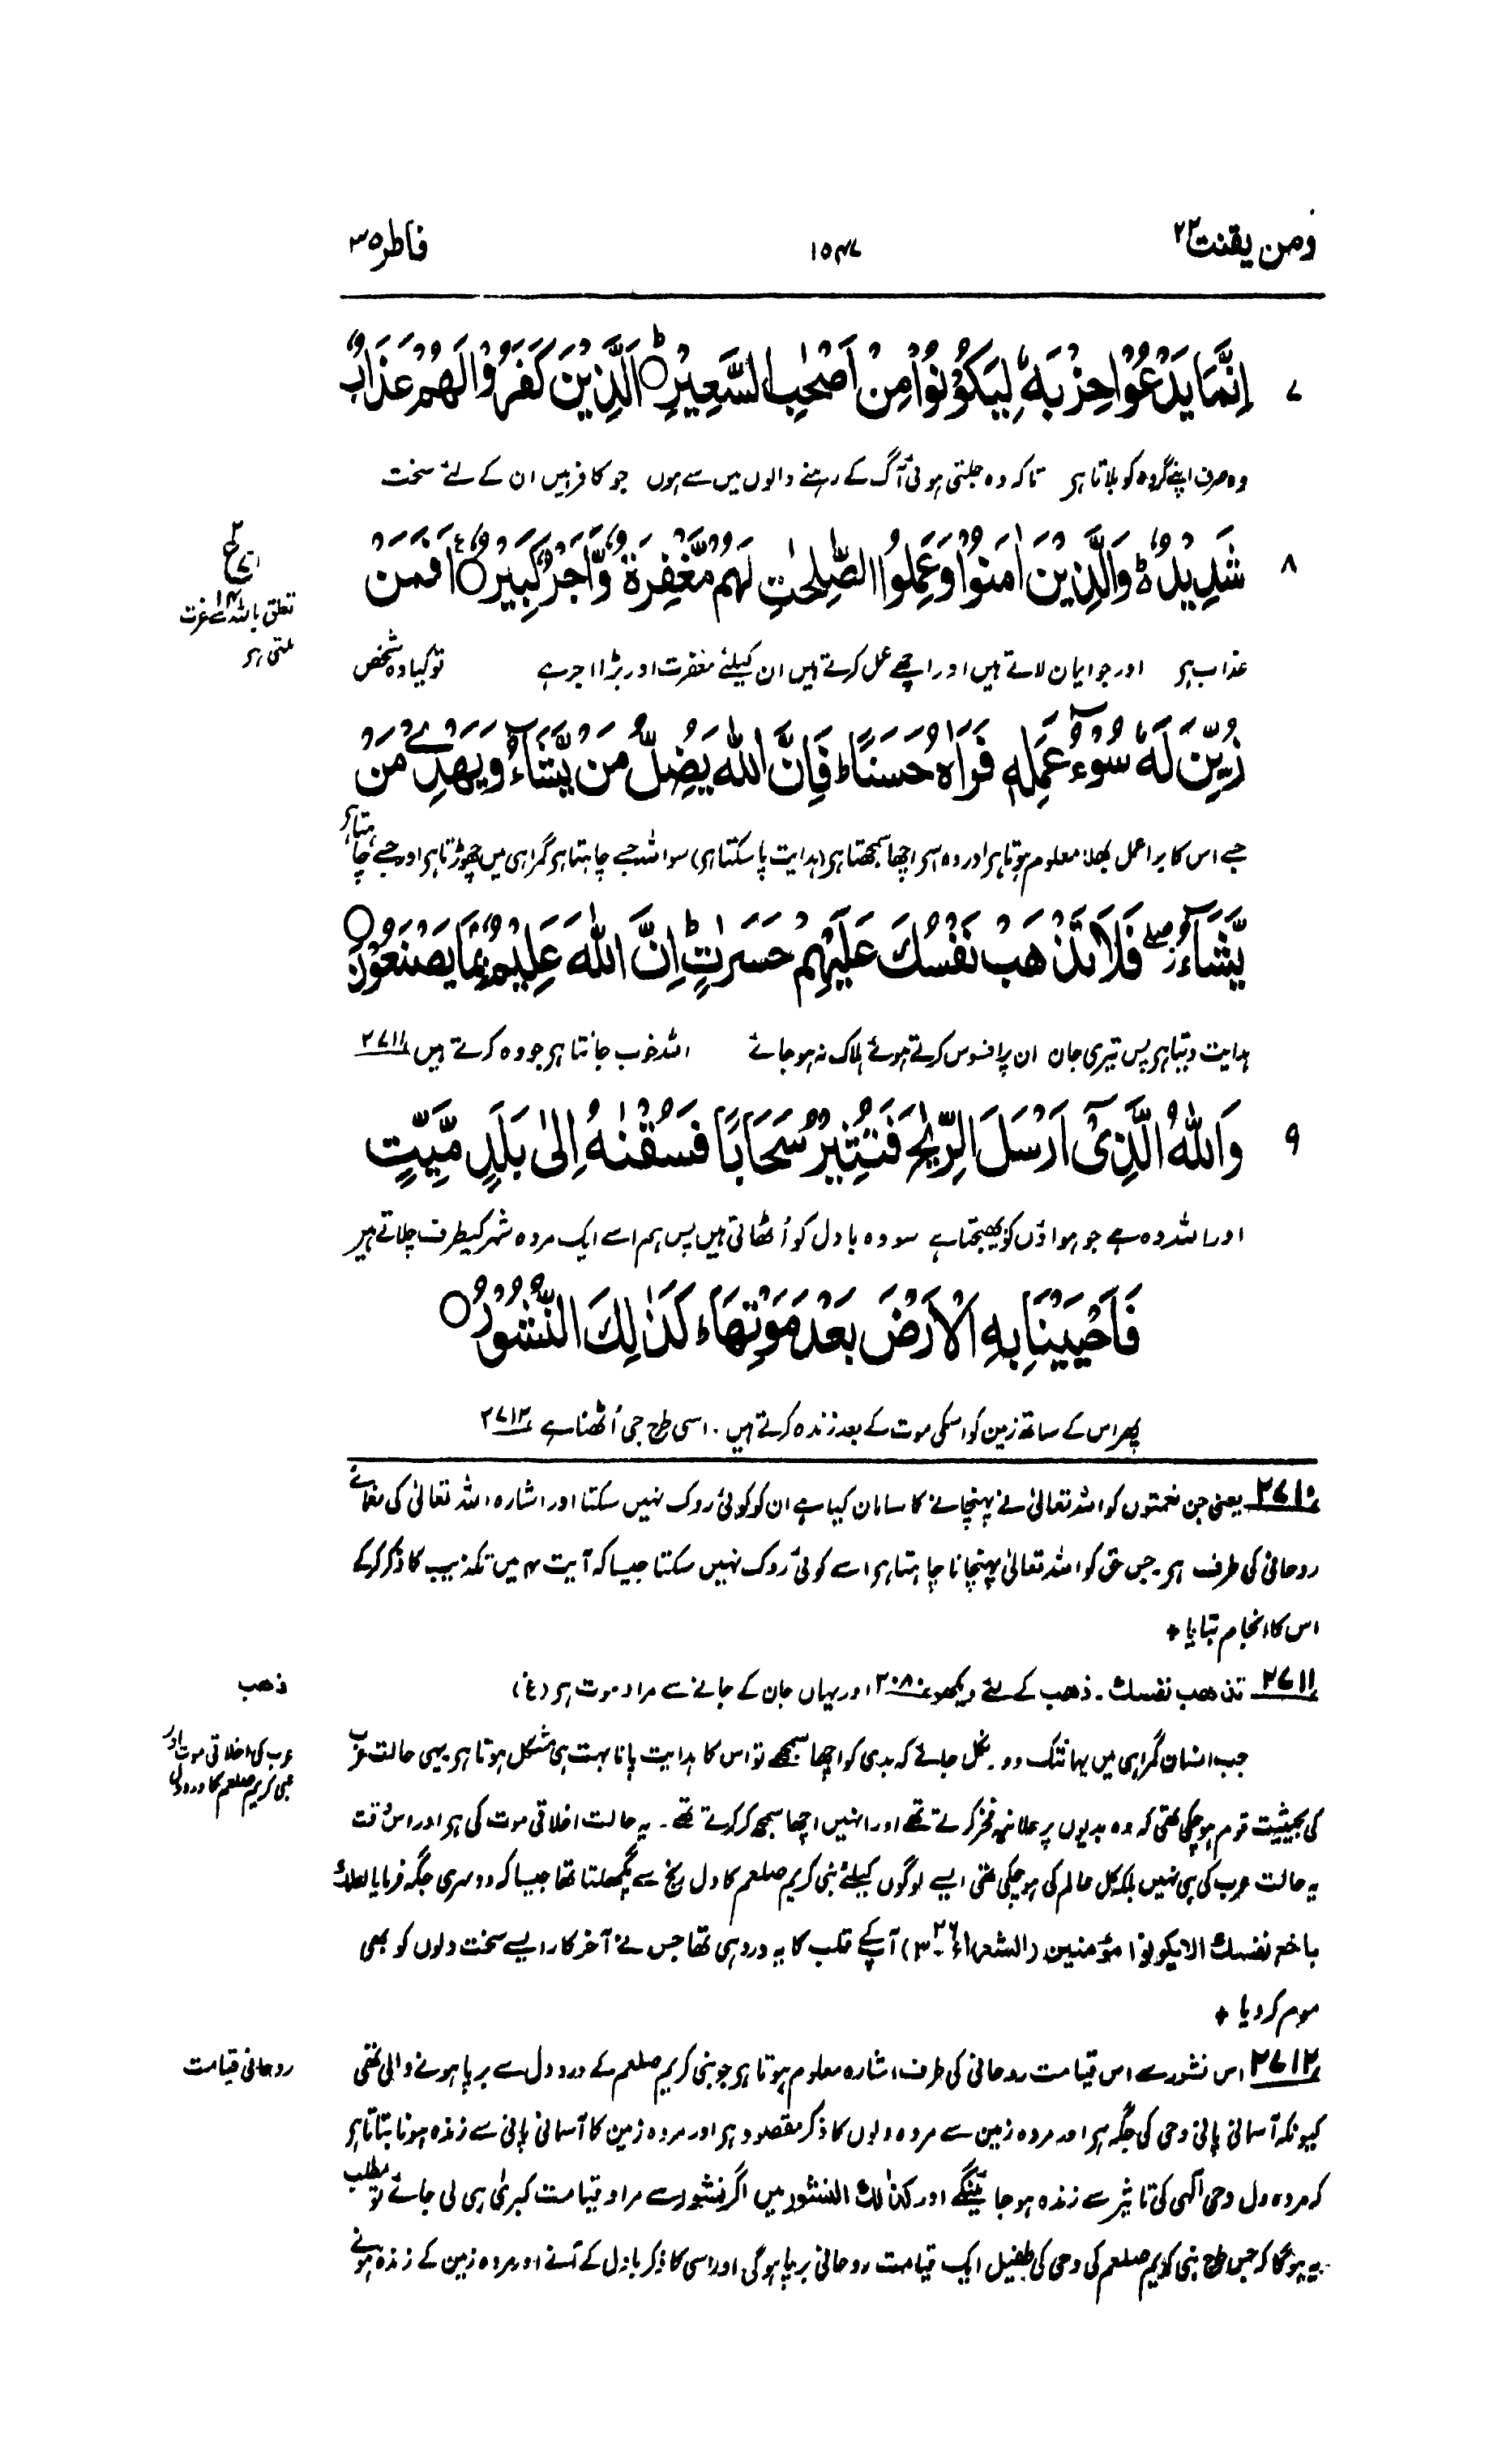 ومن یقنت ۲۲
۱۵۴۷
فاطر ۳۵
۷
اِنَّمَا یَدْعُوْا حِزْبَهٗ لِیَكُوْنُوْا مِنْ اَصْحٰبِ السَّعِیْرِ ۝ؕ اَلَّذِیْنَ كَفَرُوْا لَهُمْ عَذَابٌ
وہ صرف اپنے گروہ کو بلاتا ہر تاکہ وہ جلتی ہوئی آگ کے رہنے والوں میں سے ہوں جو کافر ہیں ان کے لئے سخت
۸
شَدِیْدٌ ؕ۬ وَالَّذِیْنَ اٰمَنُوْا وَعَمِلُوا الصّٰلِحٰتِ لَهُمْ مَّغْفِرَةٌ وَّاَجْرٌ كَبِیْرٌ ۝ع اَفَمَنْ
تعلق باللہ سے عزت
ملتی ہر
عذاب ہر اور جو ایمان لاتے ہیں اور اچھے عمل کرتے ہیں ان کیلئے مغفرت اور بڑا اجر ہے تو کیا وہ شخص
زُیِّنَ لَهٗ سُوْٓءُ عَمَلِهٖ فَرَاٰهُ حَسَنًا ؕ فَاِنَّ اللّٰهَ یُضِلُّ مَنْ یَّشَآءُ وَیَهْدِیْ مَنْ
جسے اس کا برا عمل بھلا معلوم ہوتا ہر اور وہ اسے اچھا سمجھتا ہر (ہدایت پا سکتا ہر) سو اللہ جسے چاہتا ہر گمراہی میں چھوڑتا ہر اور جسے چاہتا ہر
یَّشَآءُ ۖؗ فَلَا تَذْهَبْ نَفْسُكَ عَلَیْهِمْ حَسَرٰتٍ ؕ اِنَّ اللّٰهَ عَلِیْمٌۢ بِمَا یَصْنَعُوْنَ ۝
ہدایت دیتا ہر پس تیری جان ان پر افسوس کرتے ہوئے ہلاک نہ ہو جائے اللہ خوب جانتا ہر جو وہ کرتے ہیں ۲۷۱۱
۹
وَاللّٰهُ الَّذِیْٓ اَرْسَلَ الرِّیٰحَ فَتُثِیْرُ سَحَابًا فَسُقْنٰهُ اِلٰی بَلَدٍ مَّیِّتٍ
اور اللہ وہ ہے جو ہواؤں کو بھیجتا ہے سو وہ بادل کو اُٹھاتی ہیں پس ہم اسے ایک مردہ شہر کیطرف چلاتے ہیں
فَاَحْیَیْنَا بِهِ الْاَرْضَ بَعْدَ مَوْتِهَا ؕ كَذٰلِكَ النُّشُوْرُ ۝
پھر اس کے ساتھ زمین کو اسکی موت کے بعد زندہ کرتے ہیں ۔ اسی طرح جی اُٹھنا ہے ۲۷۱۲
۲۷۱۰ یعنی جن نعمتوں کو اللہ تعالیٰ نے پہنچانے کا سامان کیا ہے ان کو کوئی روک نہیں سکتا اور اشارہ اللہ تعالیٰ کی نعمائے
روحانی کی طرف ہر۔ جس حق کو اللہ تعالیٰ پہنچانا چاہتا ہر اسے کوئی روک نہیں سکتا جیسا کہ آیت ۴ میں تکذیب کا ذکر کرکے
اس کا انجام بتایا ✦
۲۷۱۱ تذھب نفسك۔ ذھب کے لئے دیکھو ۲۰۸۰ اور یہاں جان کے جانے سے مراد موت ہر (غ)
ذھب
جب انسان گمراہی میں یہانتک دور نکل جائے کہ بدی کو اچھا سمجھے تو اس کا ہدایت پانا بہت ہی مشکل ہوتا ہر یہی حالت عرب
عرب کی اخلاقی موت اور
نبی کریم صلعم کا درد دل
کی بحیثیت قوم ہو چکی تھی کہ وہ بدیوں پر علانیہ فخر کرتے تھے اور انہیں اچھا سمجھ کر کرتے تھے۔ یہ حالت اخلاقی موت کی ہر اور اس وقت
یہ حالت عرب کی ہی نہیں بلکہ کل عالم کی ہو چکی تھی ایسے لوگوں کیلئے نبی کریم صلعم کا دل رنج سے پگھلتا تھا جیسا کہ دوسری جگہ فرمایا لعلك
باخع نفسك الا یکونوا مؤمنین (الشعراء ۲۶۔۳) آپ کے قلب کا یہ درد ہی تھا جس نے آخر کار ایسے سخت دلوں کو بھی
موم کر دیا ✦
۲۷۱۲ اس نشور سے اس قیامت روحانی کی طرف اشارہ معلوم ہوتا ہر جو نبی کریم صلعم کے درد دل سے برپا ہونے والی تھی
روحانی قیامت
کیونکہ آسمانی پانی وحی کی جگہ ہر اور مردہ زمین سے مردہ دلوں کا ذکر مقصود ہر اور مردہ زمین کا آسمانی پانی سے زندہ ہونا بتاتا ہر
کہ مردہ دل وحی الٰہی کی تاثیر سے زندہ ہو جائینگے اور کذٰلك النشور میں اگر نشور سے مراد قیامت کبریٰ ہی لی جائے تو مطلب
یہ ہوگا کہ جس طرح نبی کریم صلعم کی وحی کی طفیل ایک قیامت روحانی برپا ہوگی اور اسی کا ذکر بادل کے آنے اور مردہ زمین کے زندہ ہونے